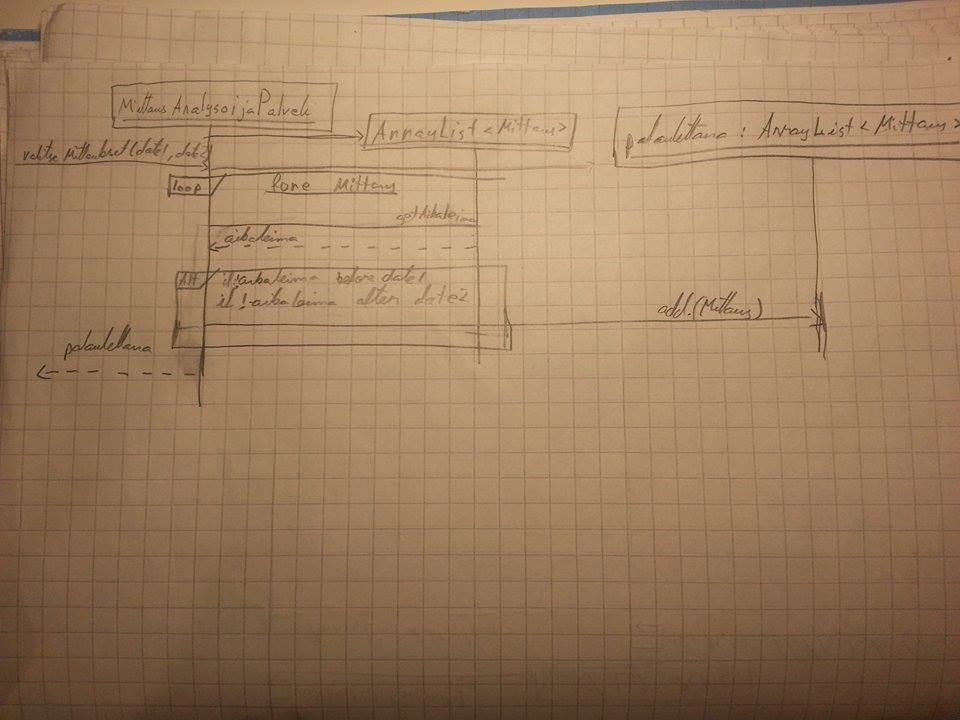 MittausAnalysoijaPalvelu
ArrayList <Mittaus>
palautettava : ArrayList <Mittaus>
valitse Mittaukset(date1, date2)
loop
Mittaus
getAikaleima
aikaleima
Alt
if !aikaleima before date1
if !aikaleima after date2
add.(Mittaus)
palautettava